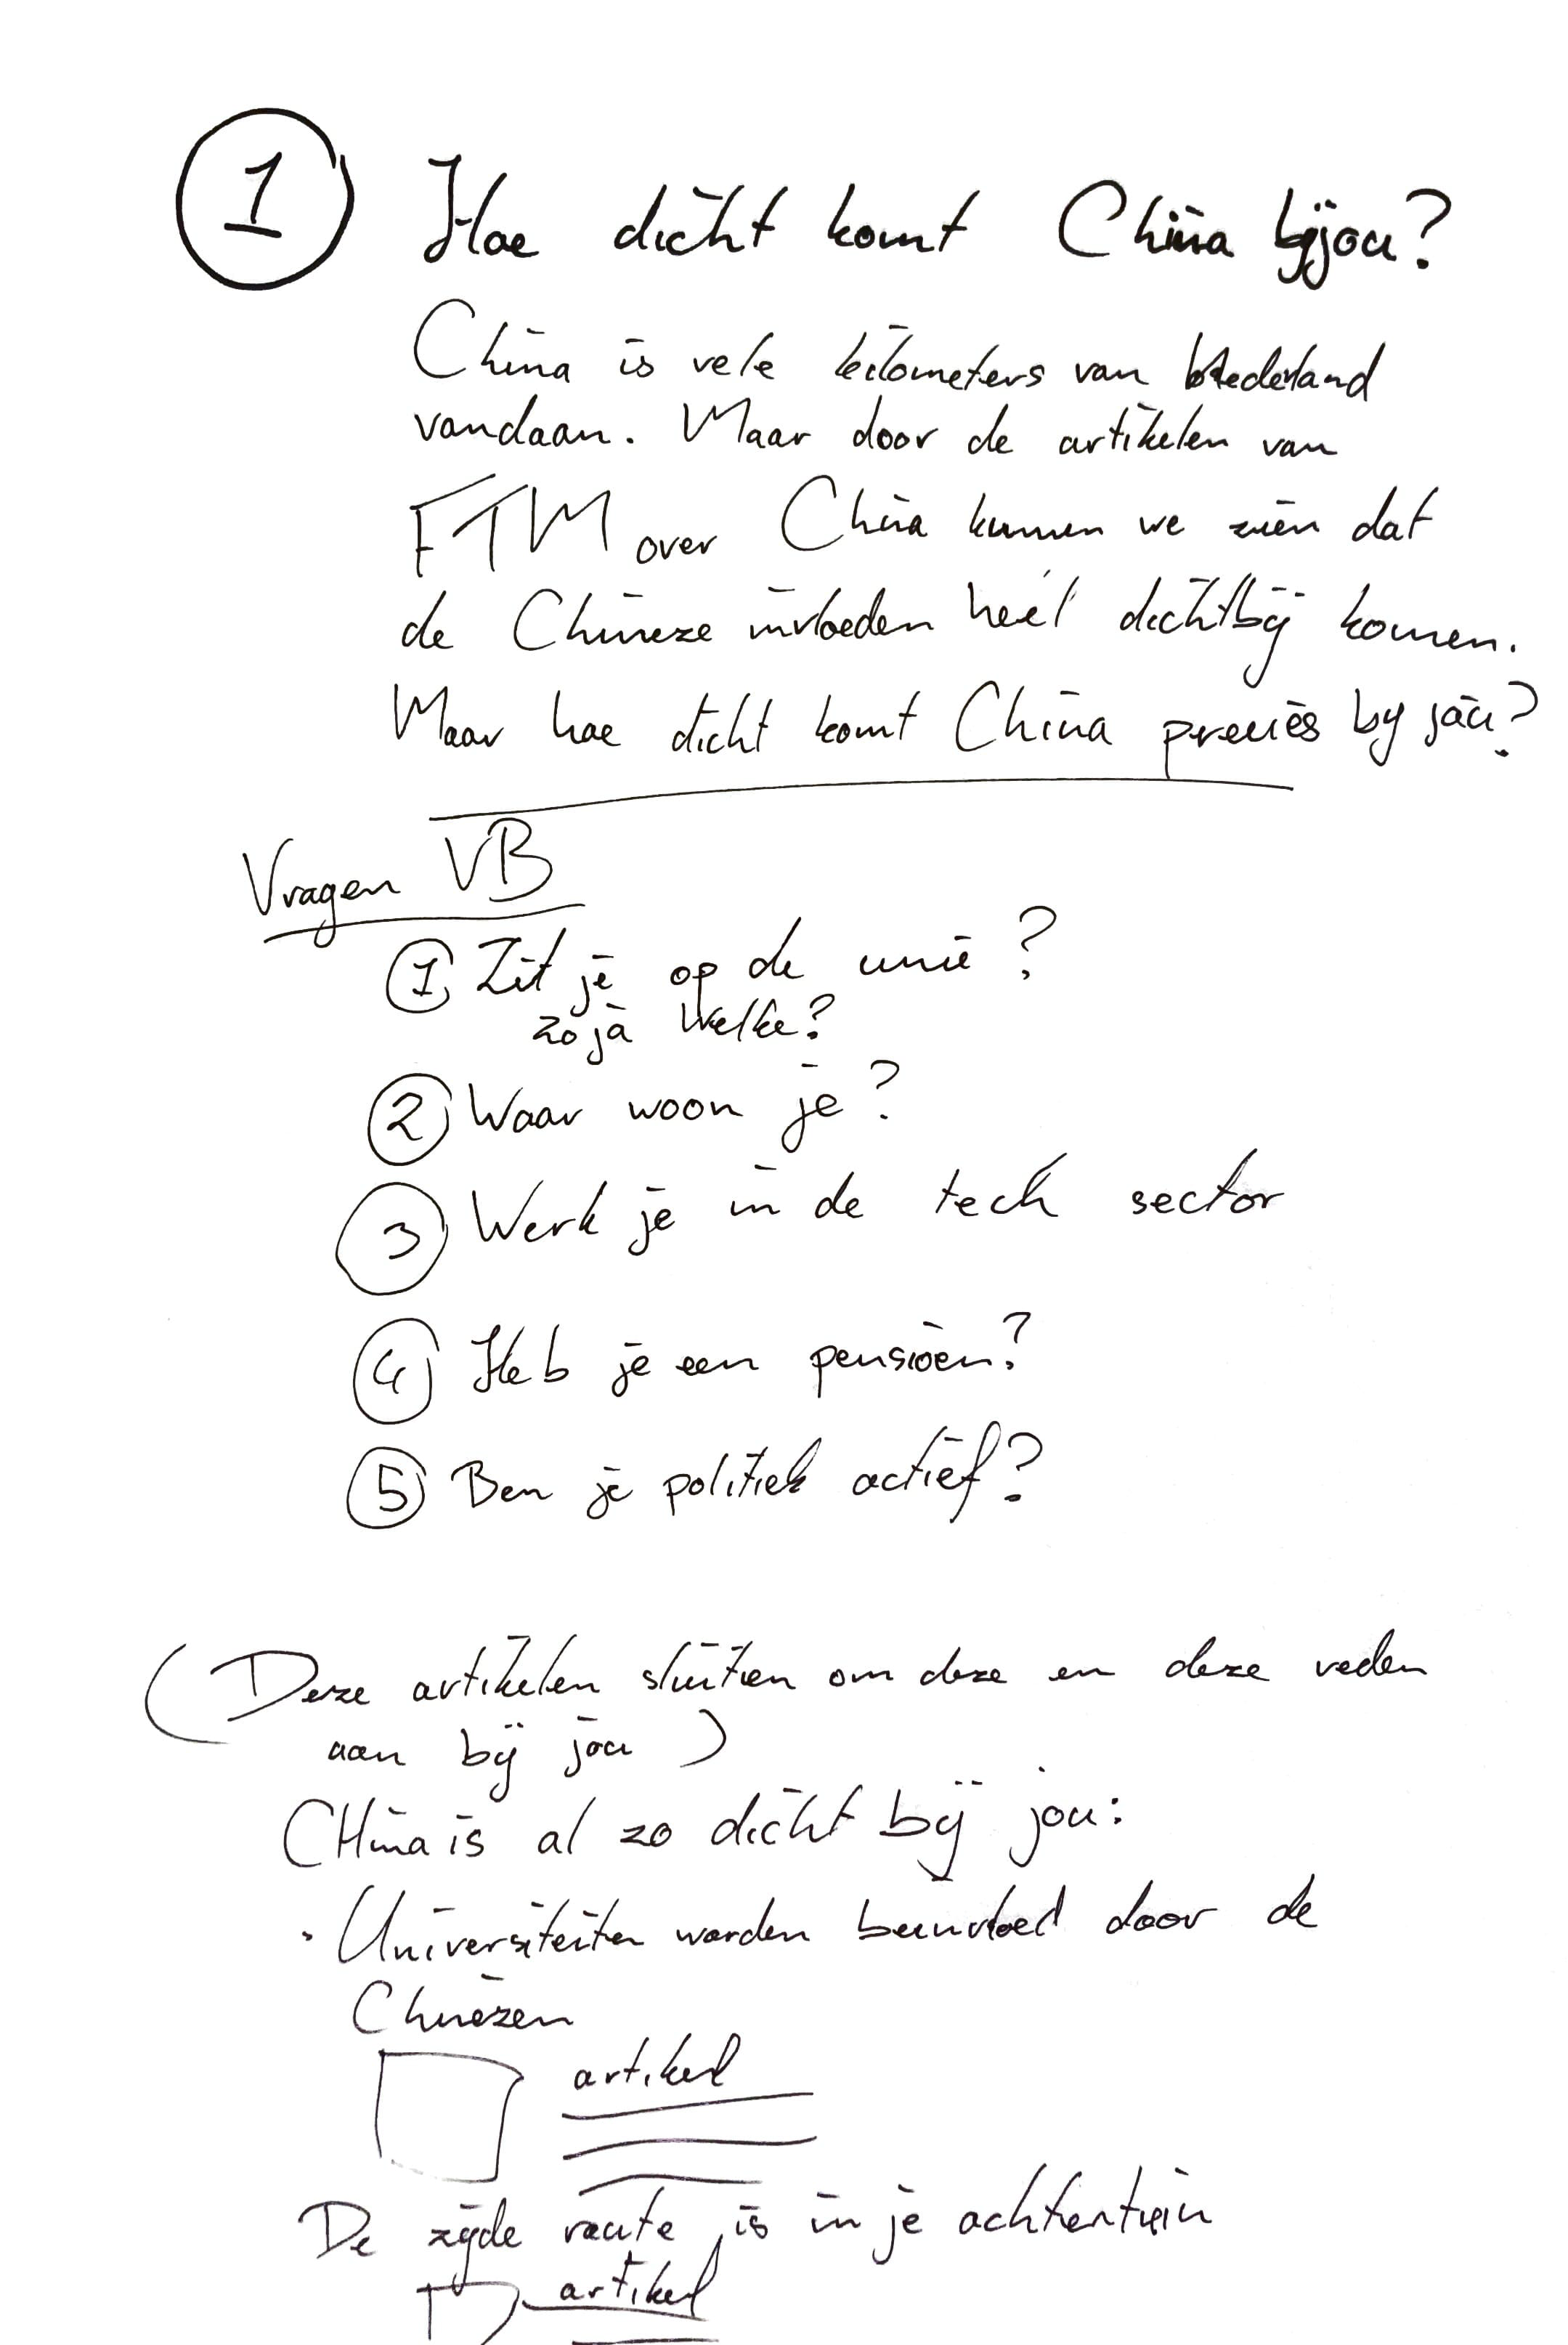 1 Hoe dicht komt China bij jou?
China is vele kilometers van Nederland
vandaan. Maar door de artikelen van
FTM over China kunnen we zien dat
de Chineze invloeden heel dichtbij komen.
Maar hoe dicht komt China precies bij jou?
Vragen VB
1 Zit je op de unie?
zo ja welke?
2 Waar woon je?
3 Werk je in de tech sector
4 Heb je een pensioen?
5 Ben je politiek actief?
(Deze artikelen sluiten om deze en deze reden
aan bij jou)
CHina is al zo dicht bij jou:
· Universiteiten worden beinvloed door de
Chinezen
artikel
De zijde route is in je achtertuin
artikel